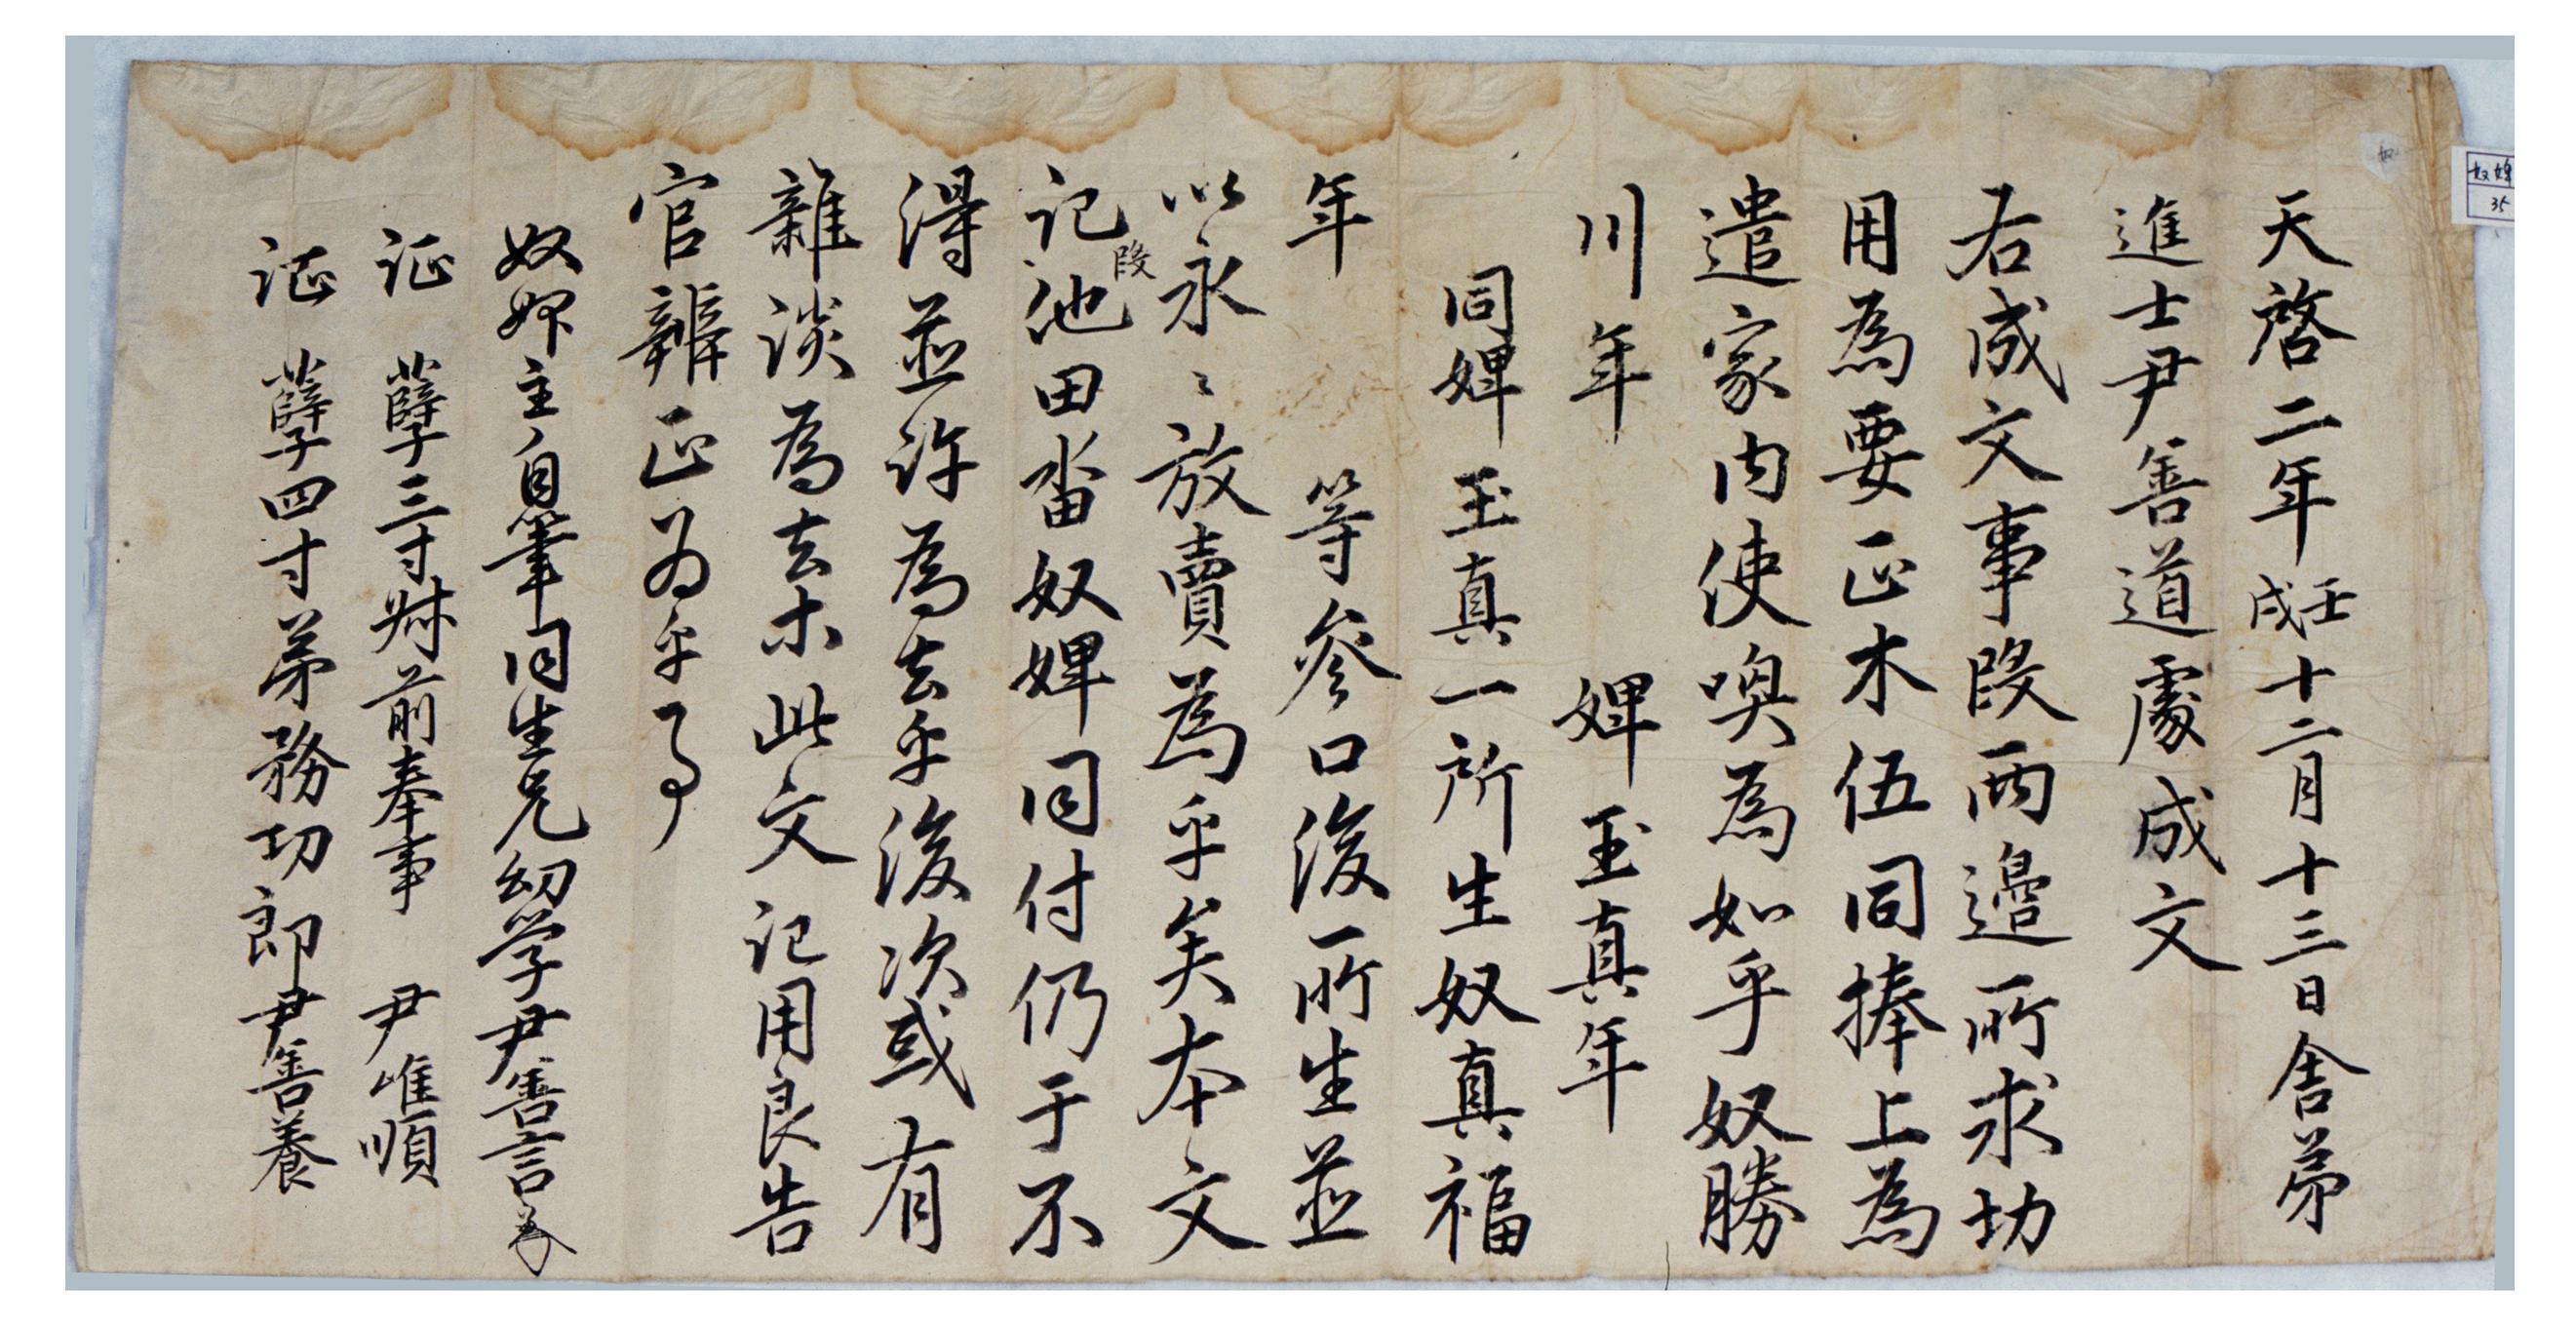 天啓二年壬戌十二月十三日舍弟
進士尹善道處成文
右成文事段兩邊所求切
用爲要正木伍同捧上爲
遣家内使喚爲如乎奴勝
川年 婢玉真年
同婢玉真一所生奴真福
年 等叄口後所生並
以永〻放賣爲乎矣本文
記段他田畓奴婢同付仍于不
得並許爲去乎後次或有
雜談爲去木此文記用良告
官辨正爲乎事
奴婢主自筆同生兄幼學尹善言
證 孼三寸叔前奉事 尹唯順
證 孼四寸弟務功郎尹善養
奴婢
35